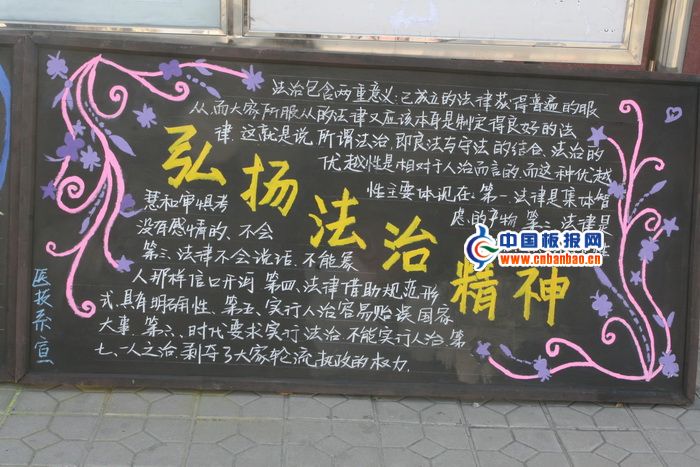 法治包含两重意义:已成立的法律获得普遍的服
从,而大家所服从的法律又应该本身是制定得良好的法
律.这就是说,所谓法治,即良法与守法的结合、法治的
优越性是相对于人治而言的.而这种优越
性主要体现在:第一.法律是集体智
慧和审慎考
虑的产物.第二.法律是
没有感情的、不会
第三.法律不会说话、不能象
人那样信口开河 第四.法律借助规范形
式.具有明确性、第五、实行人治容易贻误国家
大事.第六、时代要求实行法治.不能实行人治.第
七、一人之治.剥夺了大家轮流执政的权力.
弘扬法治精神
医技系宣
中国板报网
www.cnbanbao.cn